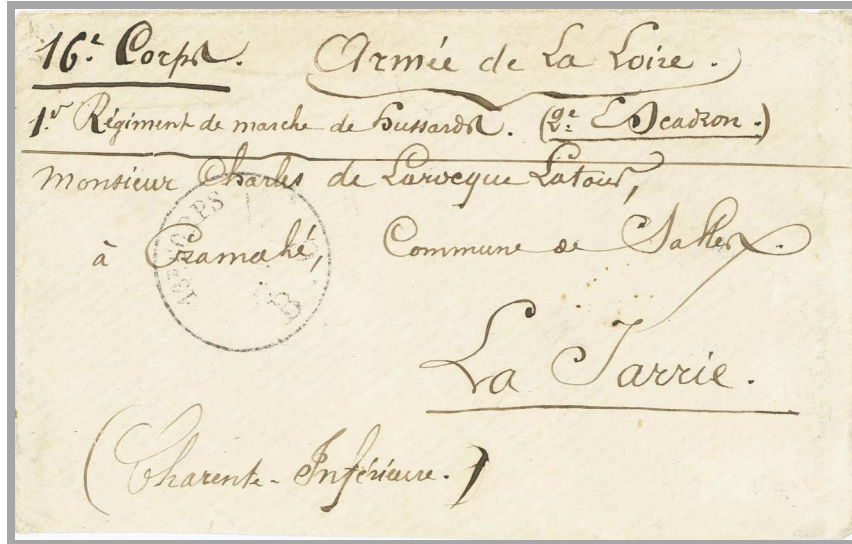 16.e Corps. Armée de La Loire.
1.r Régiment de marche de hussards. (2.e Escadron.)
Monsieur Charles de Larocque Latour,
à Cramahé, Commune de Salles.
La Jarrie.
(Charente-Inférieure.)
CORPS
B